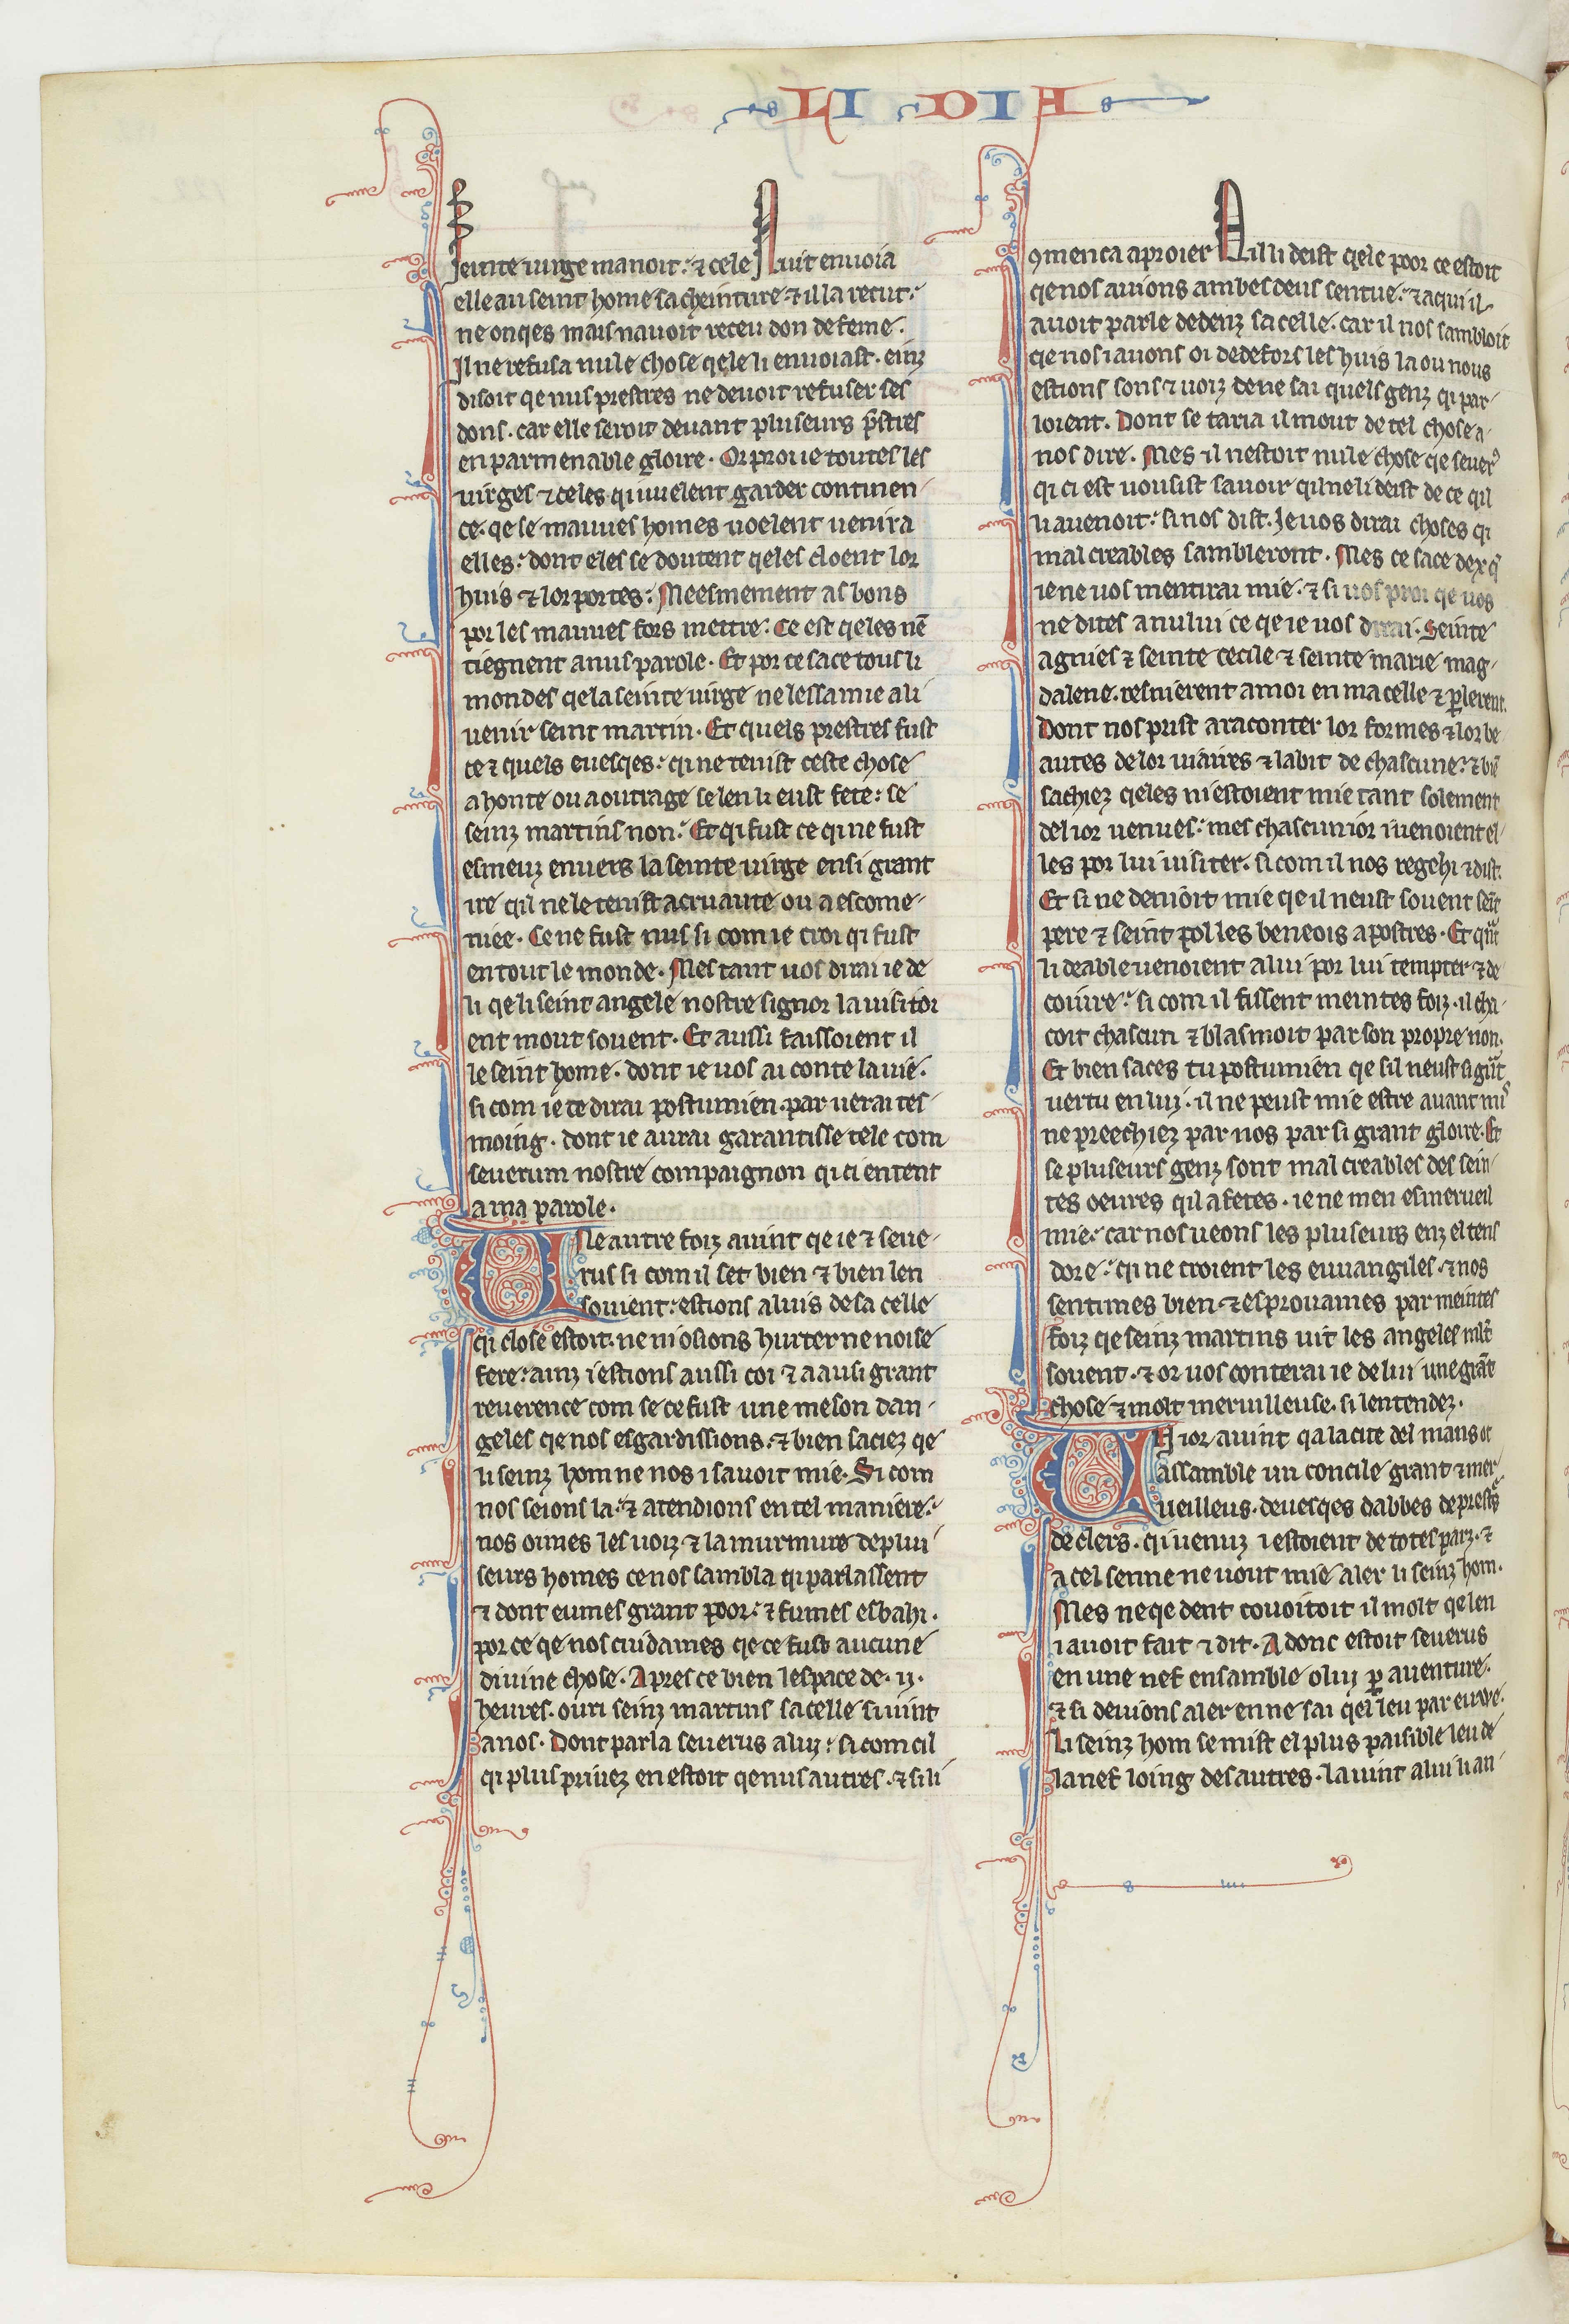 LI DIA
seinte uirge manoit. ⁊ cele nuit enuoia
elle au seint home sa cheinture. ⁊ il la recut.
ne onqes mais nauoit receu don de feme.
Il ne refusa nule chose qele li enuoiast. einz
disoit qe nus prestres ne deuoit refuser ses
dons. car elle seroit deuant pluseurs p̄stres
en parmenable gloire. Or proue toutes les
uirges ⁊ celes qi uuelent garder continen-
ce. qe se mauues homes uoelent uenir a
elles. dont eles se doutent qeles cloent lor
huis ⁊ lor portes. Meesmement as bons
por les mauues fors mettre. Ce est qeles nē
tiegnent a nus parole. Et por ce sace tous li
mondes qe la seinte uirge ne lessa mie a li
uenir seint martin. Et quels prestres fust
ce ⁊ quels euesqes. qi ne tenist ceste chose
a honte ou a outrage se len li eust fete. se
seinz martins non. Et qi fust ce qi ne fust
esmeuz enuers la seinte uirge en si grant
ire qil ne le tenist a cruaute ou a escome-
niee. Ce ne fust nus si com ie croi qi fust
en tout le monde. Mes tant uos dirai ie de
li qe li seint angele nostre signor la uisitoi
ent mout souent. Et aussi faissoient il
le seint home. dont ie uos ai conte la uie.
si com ie te dirai postumien. par uerai tes-
moing. dont ie aurai garantisse tele com
seuerum nostre compaignon qi ci entent
a ma parole.
Une autre foiz auint qe ie ⁊ seue-
rus si com il set bien ⁊ bien len
souient. estions a luis de sa celle
qi close estoit. ne ni osions hurter ne noise
fere. ainz i estions aussi coi ⁊ a ausi grant
reuerence com se ce fust une meson dan-
geles qe nos esgardissions. ⁊ bien saciez qe
li seinz hom ne nos i sauoit mie. Si com
nos seions la. ⁊ atendions en tel maniere.
nos oimes les uoiz ⁊ la murmure de plui
seurs homes ce nos sambla qi parlassent
⁊ dont eumes grant poor. ⁊ fumes esbahi.
por ce qe nos cuidames qe ce fust aucune
diuine chose. Apres ce bien lespace de .ii.
heures. ouri seinz martins sa celle si uint
a nos. Dont parla seuerus a luy. si com cil
qi plus priuez en estoit qe nus autres. ⁊ si li
ꝯmenca a proier qil li deist qele poor ce estoit
qe nos auions ambesdeus sentue. ⁊ a qui il
auoit parle dedenz sa celle. car il nos sambloit
qe nos i auons oi dedefors les huis la ou nous
estions sons ⁊ uoiz de ne sai quels genz qi par-
loient. Dont se taria il mout de tel chose a-
nos dire. Mes il nestoit nule chose qe seuer᷑
qi ci est uousist sauoir qil ne li deist de ce qil
uauenoit. si nos dist. Ie uos dirai choses qi
mal creables sambleront. Mes ce sace dex q̄
ie ne uos mentirai mie. ⁊ si uos proi qe uos
ne dites a nului ce qe ie uos dirai. Seinte
agnies ⁊ seinte cecile ⁊ seinte marie mag-
dalene. resnierent a moi en ma celle ⁊ p̱lerent.
Dont nos prist a raconter lor formes ⁊ lor be-
autes de lor uiaires ⁊ labit de chascune. ⁊ biē
sachiez qeles ni estoient mie tant solement
del ior uenues. mes chascun ior i uenoient el-
les por lui uisiter. si com il nos regehi ⁊ dist.
Et si ne denioit mie qe il neust souent seīt
pere ⁊ seint pol les beneois apostres. Et qn̄t
li deable uenoient a lui por lui tempter ⁊ de-
coiure. si com il fissent meintes foiz. il cha-
coit chascun ⁊ blasmoit par son propre non.
Et bien saces tu postumien qe sil neust si gn̄t
uertu en luj. il ne peust mie estre auant mis
ne preechiez par nos par si grant gloire. Et
se pluseurs genz sont mal creables des sein-
tes oeures qil a fetes. ie ne men esmerueil
mie. car nos ueons les pluseurs enz el tens
dore. qi ne croient les euuangiles. ⁊ nos
sentimes bien ⁊ esprouames par meintes
foiz qe seinz martins uit les angeles ml̄t
souent. ⁊ or uos conterai ie de lui une grāt
chose ⁊ molt merueilleuse. si lentendez.
Un ior auint qa la cite del mans ot
assamble un concile grant ⁊ mer-
ueilleus. deuesqes dabbes de prestr̄s
de clers. qi uenuz i estoient de totes parz. ⁊
a cel senne ne uout mie aler li seinz hom.
Mes neqedent couoitoit il molt qe len
i auoit fait ⁊ dit. Adonc estoit seuerus
en une nef ensamble o luy p̱ auenture.
⁊ si deuions aler en ne sai qel leu par euwe.
Li seinz hom se mist el plus paisible leu de
la nef loing des autres. la uint a lui li an